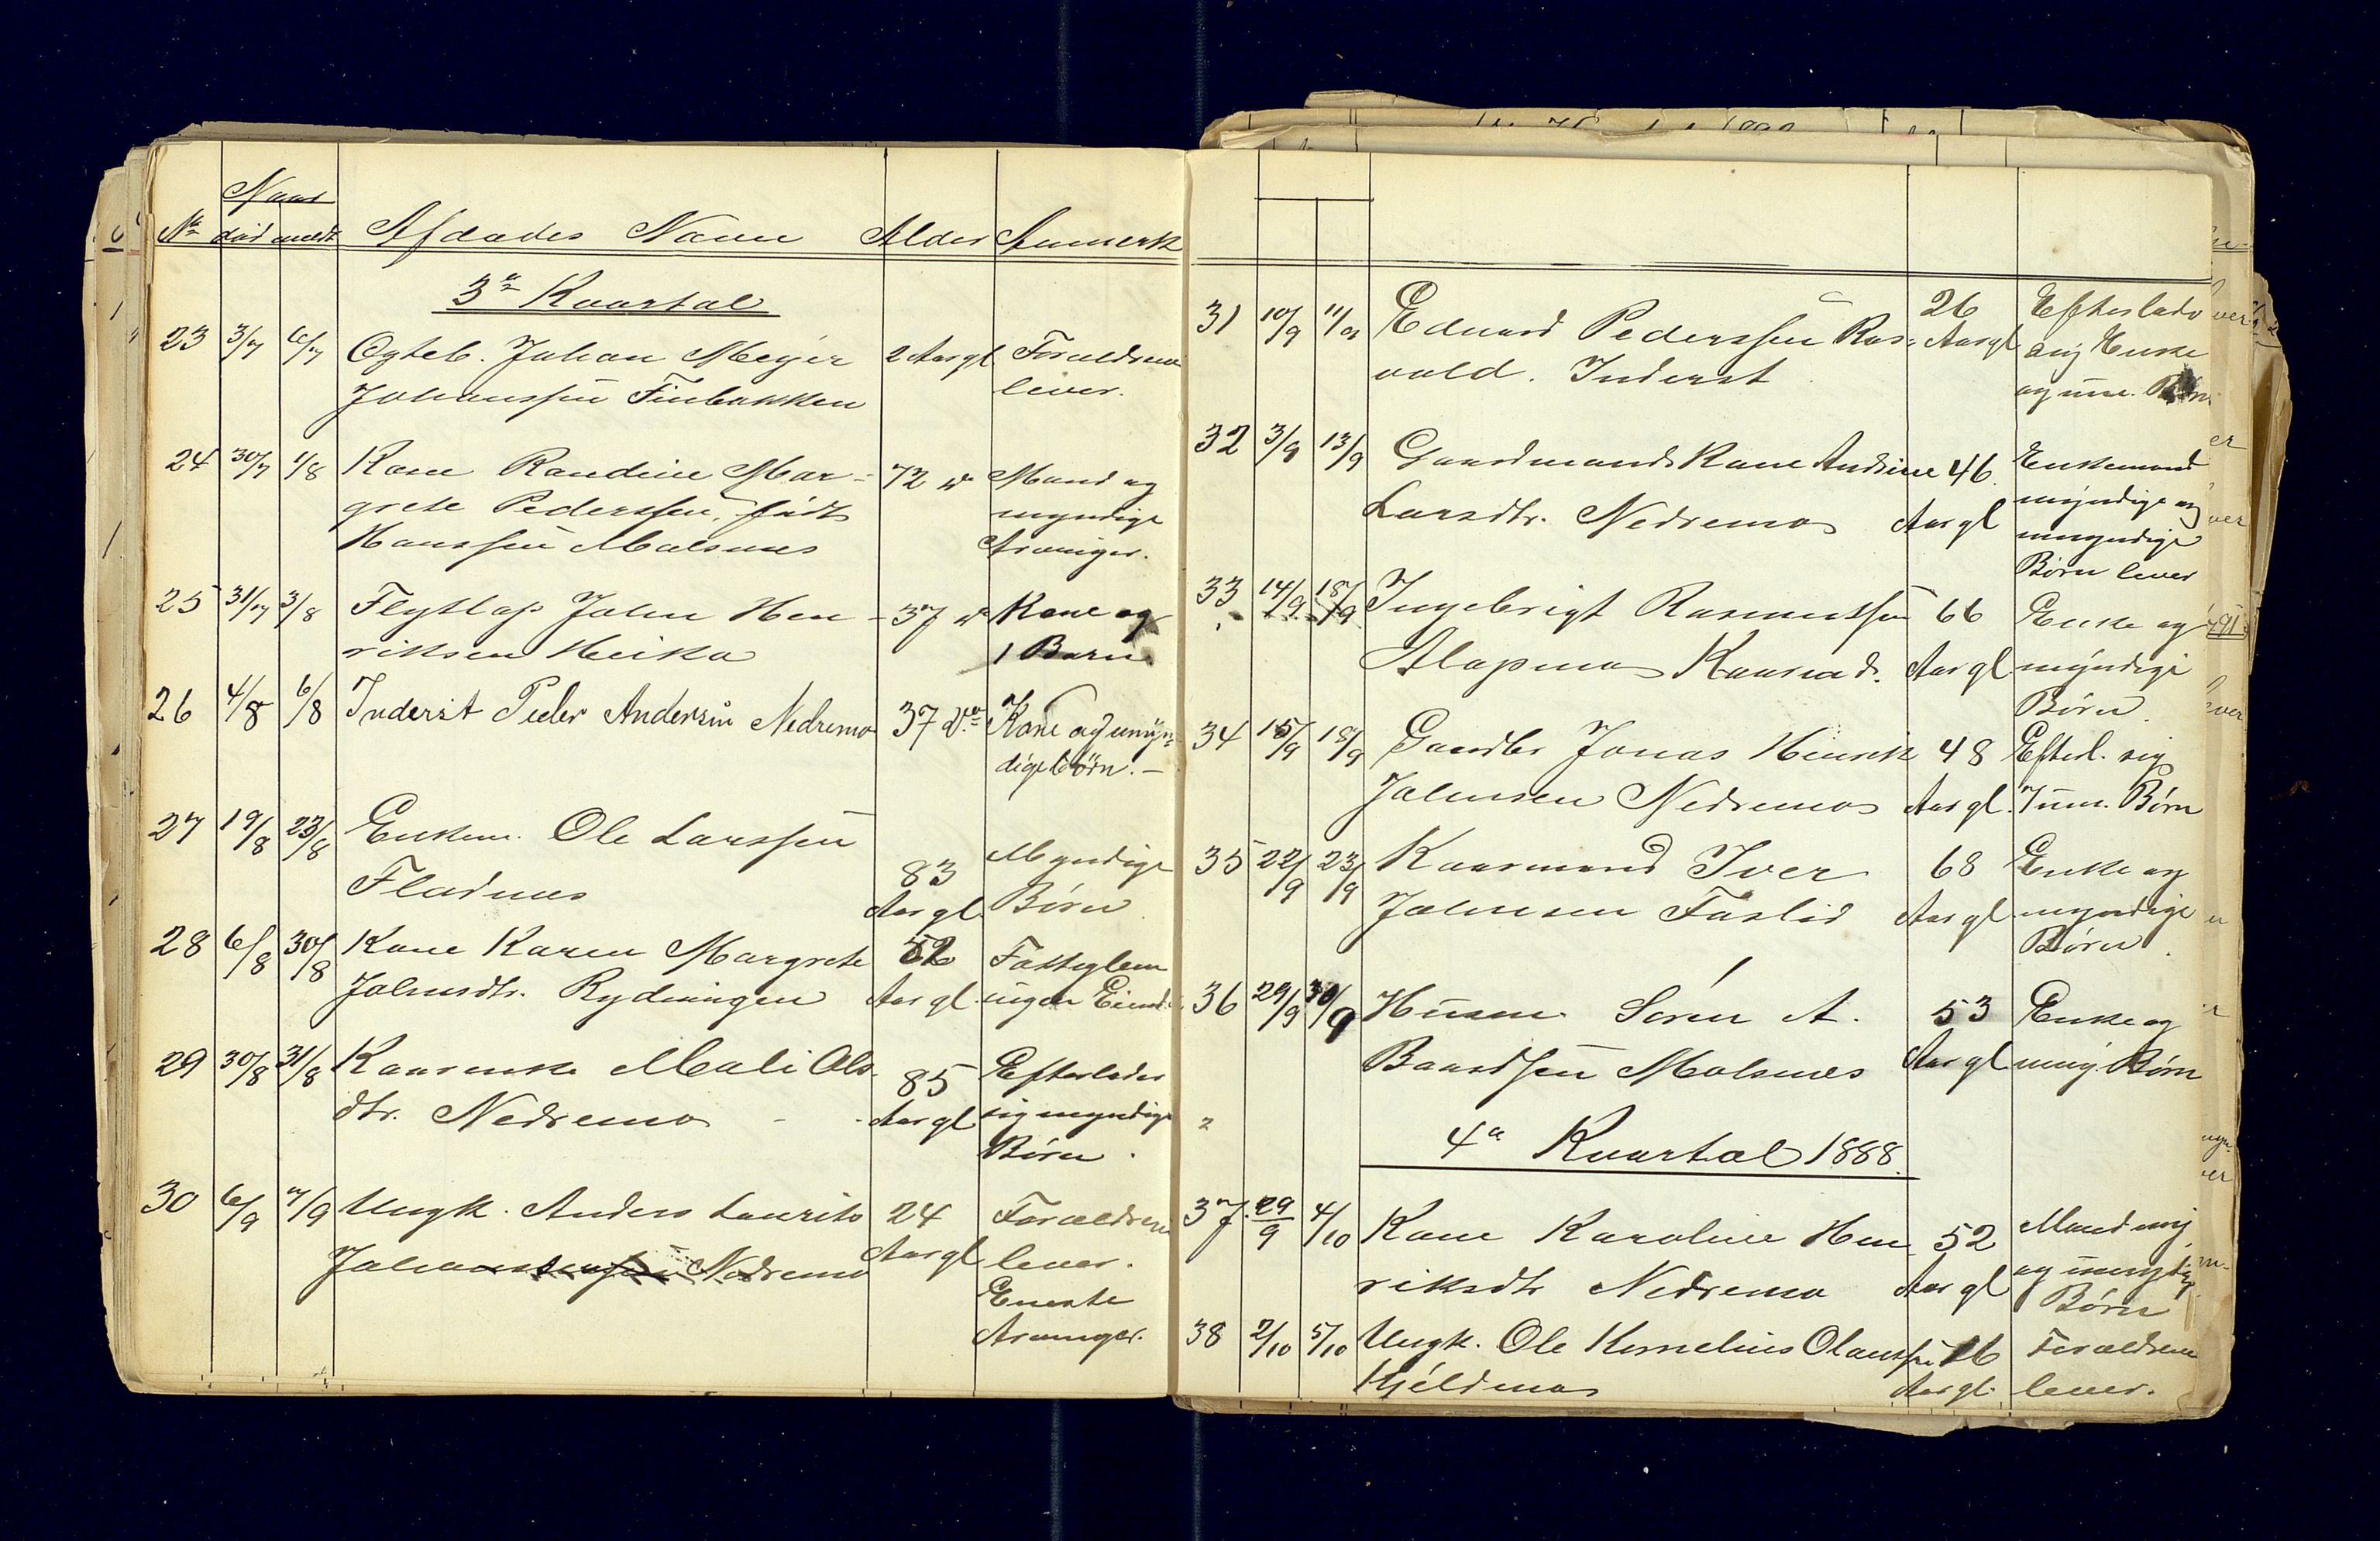 Naar
No død meldt Afdødes Navn Alder Anmerk
3die Kvartal
23 3/7 6/7 Ogteb. Johan Meyer 2 Aar gl Forældrene
Johanssen Finbakken lever.
24 30/7 1/8 Kone Randine Mar- 72 do Mand og
grete Pederssen, født myndige
Hanssen Målsnes Arvinger.
25 31/7 3/8 Flytlap John Hen- 37 do Kone og
riksen Heika 1 Barn
26 4/8 6/8 Inderst Peder Andersen Nedremo 37 do Kone og umyn-
dige børn.-
27 19/8 23/8 Enkem. Ole Larssen
Fladnes 83 Myndige
Aar gl. Børn
28 6/8 30/8 Kone Karen Margrete 52 Fattiglem
Johnsdtr. Rydningen Aar gl. ingen Eiend.
29 30/8 31/8 Kaarenke Mali Ols- 85 Efterlader
dtr. Nedremo Aar gl sig myndige
Børn.
30 6/9 7/9 Ungk. Anders Laurits 24 Forældrene
Johanssen Nedremo Aar gl lever.
Eneste
Arvinger.
31 10/9 11/9 Eduard Pederssen Ros- 26 Efterlader
vold. Inderst Aar gl. sig Enke
og um. Børn
32 3/9 13/9 Gaardmands Kone Andrine 46 Enkemand
Larsdtr. Nedremo Aar gl myndige og
umyndige
Børn lever
33 14/9 18/9 Ingebrigt Rasmussen 66 Enke og
Alapmo Kaarmd. Aar gl. myndige
Børn.
34 15/9 18/9 Gaardbr Jonas Henrik 48 Efterl. sig
Johnsen Nedremo Aar gl. 7 um. Børn
35 22/9 23/9 Kaarmand Iver 68 Enke og
Johnsen Faslid Aar gl. myndige
Børn.
36 29/9 30/9 Husm. Søren A. 53 Enke og
Baardsen Målsnes Aar gl. umy. Børn
4de Kvartal 1888.
37. 29/9 4/10 Kone Karoline Hen 52 Mand myn
riksdtr Nedremo Aar gl og umyndige
Børn
38 2/10 5/10 Ungk. Ole Kornelius Olaussen 16 Forældrene
Kjeldmo Aar gl. lever.